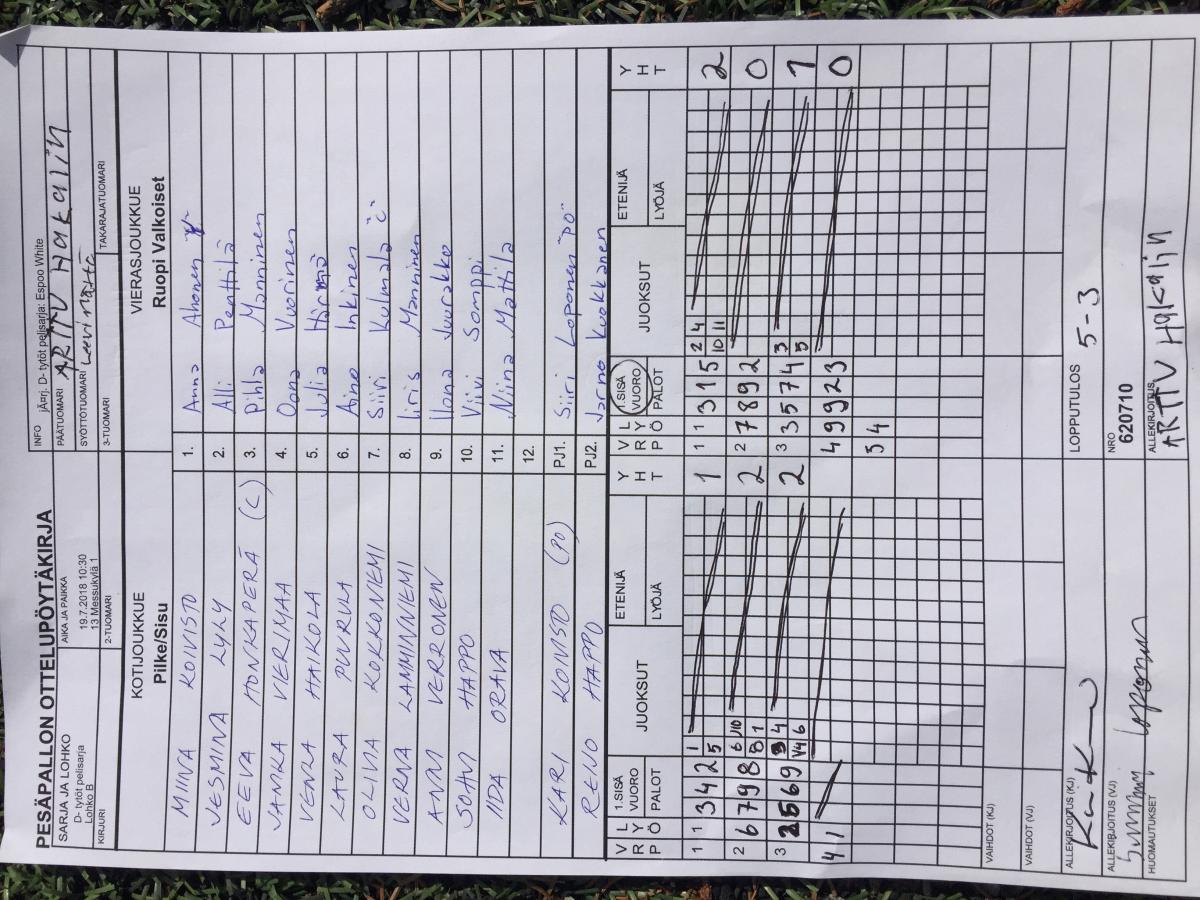 PESÄPALLON OTTELUPÖYTÄKIRJA
SARJA JA LOHKO
D- tytöt pelisarja
Lohko B
AIKA JA PAIKKA
19.7.2018 10:30
13 Messukylä 1
INFO jÄrrj: D- tytöt pelisarja: Espoo White
PÄÄTUOMARI ARTTU HAKALIN
SYÖTTÖTUOMARI
KIRJURI
2-TUOMARI
3-TUOMARI
TAKARAJATUOMARI
KOTIJOUKKUE
Pilke/Sisu
VIERASJOUKKUE
Ruopi Valkoiset
MIINA KOIVISTO 1. Anna Ahonen
JESMINA LYLY 2. Alli Penttilä
EEVA HONKAPERÄ (C) 3. Pihla Manninen
JANIKA VIERIMAA 4. Oona Vuorinen
VENLA HAIKOLA 5. Julia Härmä
LAURA PUURULA 6. Aino Inkinen
OLIVIA KOKKONIEMI 7. Siiri Kulmala "c"
VERNA LAMMINNIEMI 8. Iiris Manninen
ANNI VERRONEN 9. Ilona Vuorakko
SOHVI HAPPO 10. Viivi Somppi
IIDA ORAVA 11. Niina Mattila
12.
KARI KOIVISTO (PO) PJ1. Siiri Loponen "PO"
REINO HAPPO PJ2. Jarno Kuokkanen
V R P L Y Ö 1.SISÄ VUORO PALOT JUOKSUT ETENIJÄ LYÖJÄ Y H T
V R P L Y Ö 1.SISÄ VUORO PALOT JUOKSUT ETENIJÄ LYÖJÄ Y H T
1 1 3 4 2 1 5 1
1 1 3 1 5 2 4 10 11 2
2 6 7 9 8 6 8 J10 1 2
2 7 8 9 2 0
3 2 5 6 9 3 4 V4 6 2
3 3 5 7 4 3 5 1
4 1
4 9 9 2 3 0
5 4
VAIHDOT (KJ)
VAIHDOT (VJ)
ALLEKIRJOITUS (KJ)
LOPPUTULOS 5-3
ALLEKIRJOITUS (VJ)
NRO
620710
HUOMAUTUKSET
ALLEKIRJOITUS
ARTTU HAKALIN